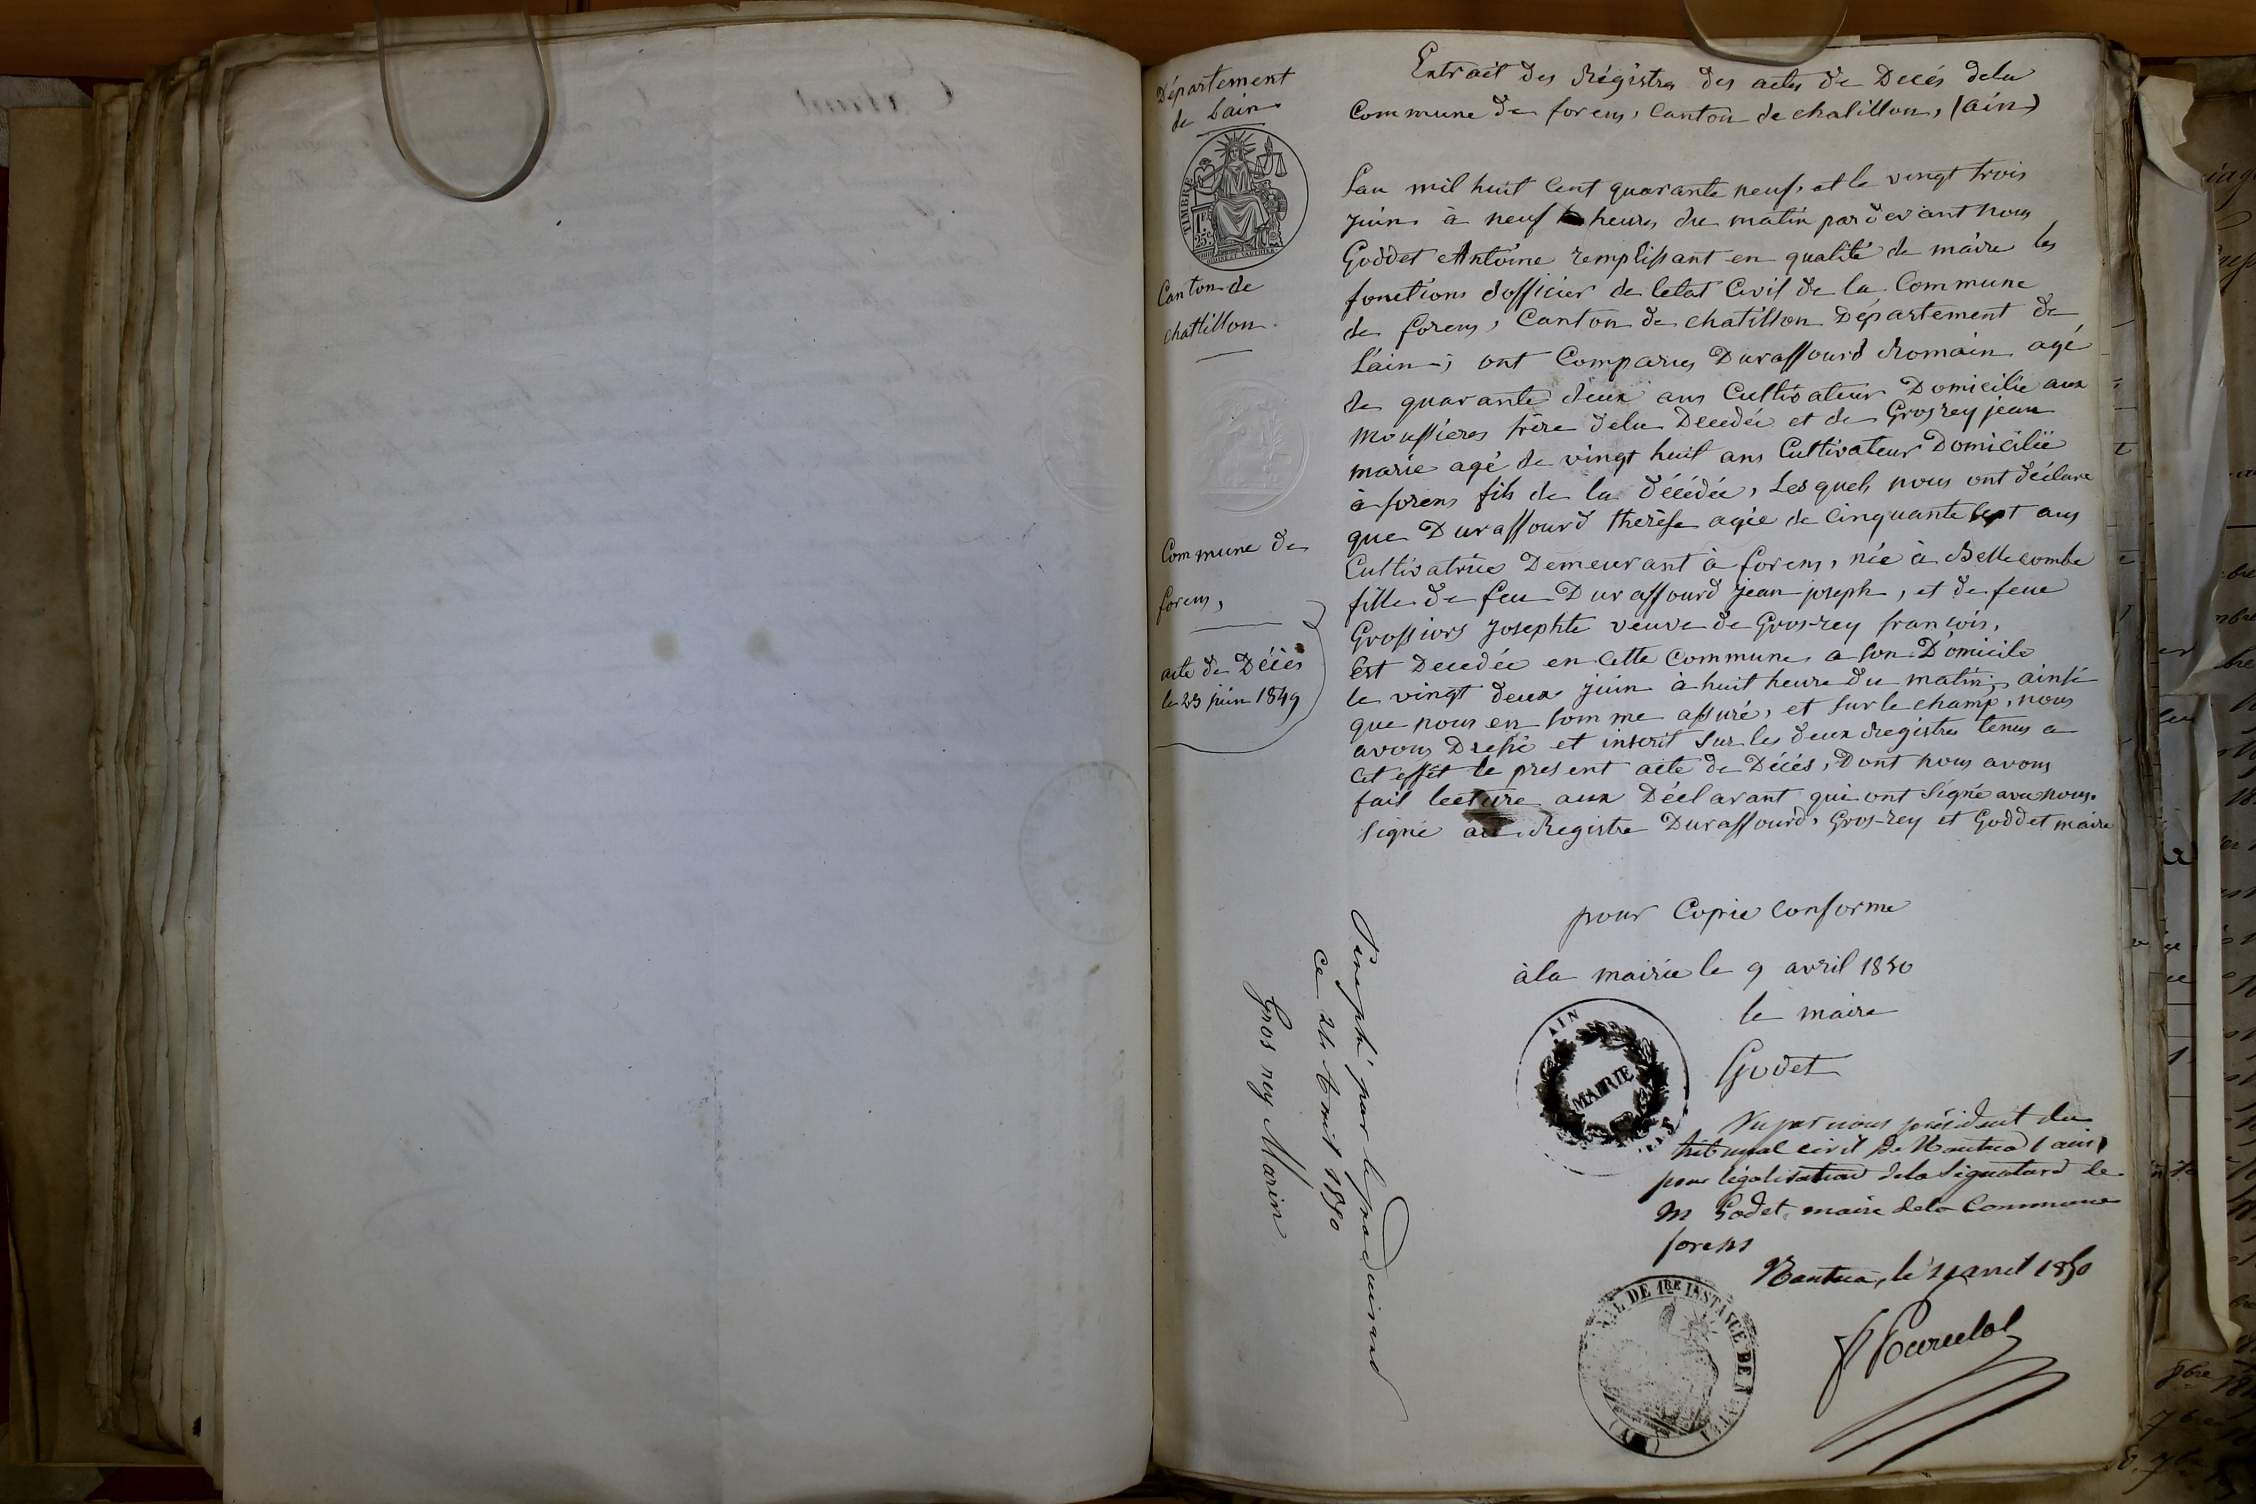 Département
de Lain
TIMBRE
1F.
25c.
Canton de
chattillon.
Commune de
forens,
acte de Décès
le 23 juin 1849
Extrait des Régistres des actes de Decés dela
Commune de forens, Canton de chatillon, (ain)
Lan mil huit Cent quarante neuf, et le vingt trois
juin à neuf heures du matin par devant nous
Goddet Antoine remplissant en qualité de maire les
fonctions dofficier de letat Civil de la Commune
de forens, Canton de chatillon Département de
L'ain, ont Comparus Duraffourd Romain agé
de quarante deux ans Cultivateur Domicilié aux
Moussieres frère dela Decedée et de Grosrey jean
marie agé de vingt huit ans Cultivateur Domicilié
à forens fils de la décédée, Lesquels nous ont déclaré
que Duraffourd therèse agée de Cinquante sept ans
Cultivatrice Demeurant à forens, née à Bellecombe
fille de feu Duraffourd jean joseph, et de feue
Grossiors Josephte veuve de Gros-rey francois,
Est Decedée en Cette Commune a son Domicile
le vingt deux juin à huit heure du matin, ainsi
que nous en somme assuré, et sur le champ, nous
avons Dressé et inscrit sur les deux Registres tenus a
Cet effet le present acte de Décés, Dont nous avons
fait lecture aux Déclarant qui ont Signé avec nous.
Signé au Registre Duraffourd, Gros-rey et Goddet maire
pour Copie Conforme
à la mairie le 9 avril 1850
le maire
Godet
AIN
MAIRIE
Vu par nous président du
tribunal civil de Nantua (ain)
pour légalisation dela Signature de
M Godet, maire dela Commune
forens
Nantua, le avril 1850
DE 1RE INSTANCE DE
(AIN)
Paraphé par le
Ce 24 Avril 1850
Gros rey Marin